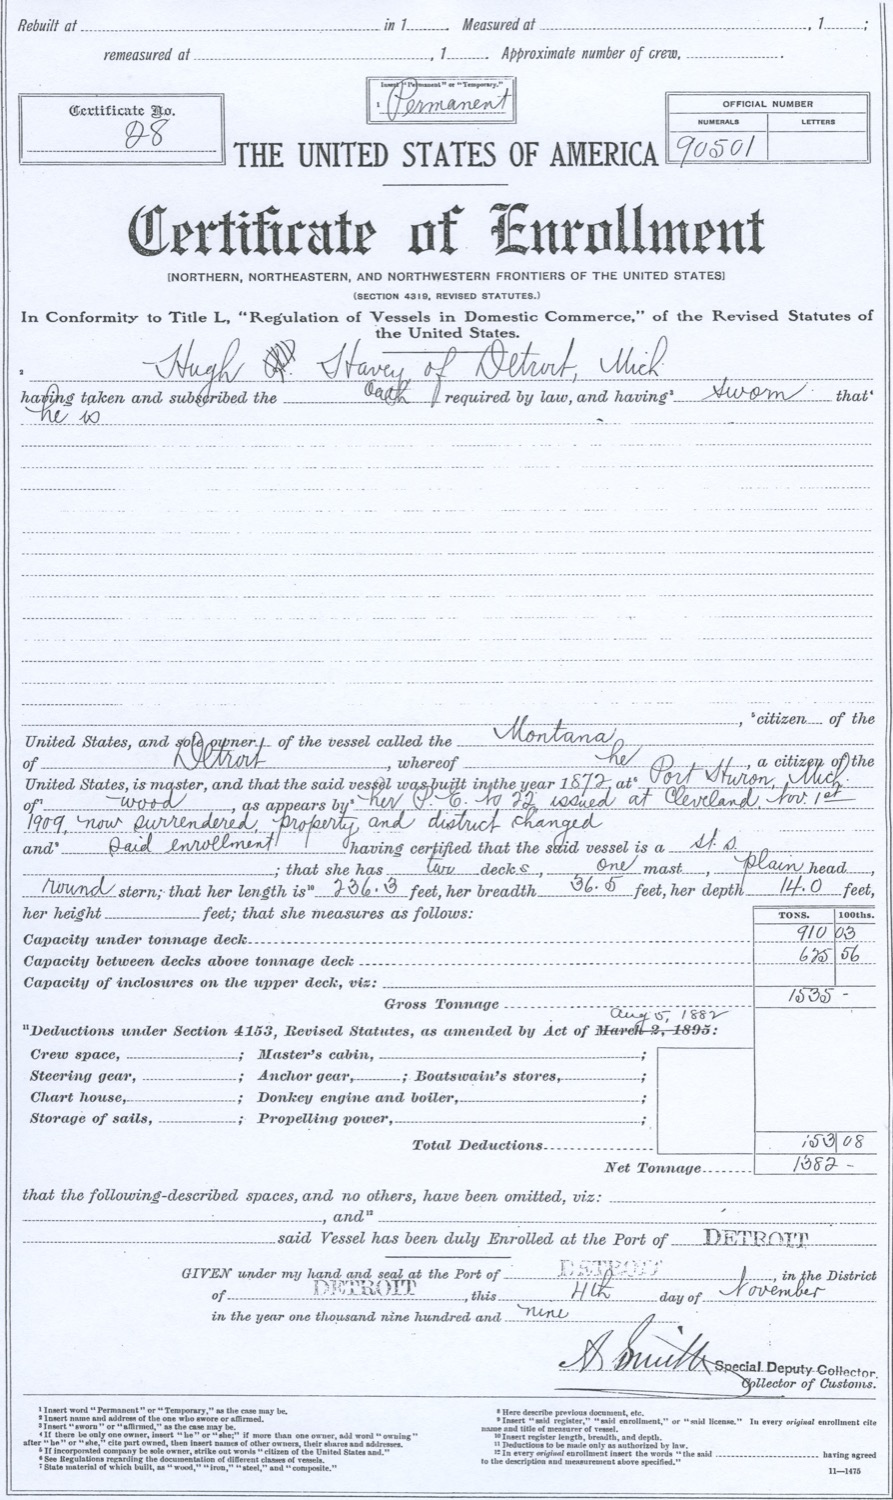 Rebuilt at in 1 Measured at , 1 ;
remeasured at , 1 Approximate number of crew, .
Insert "Permanent" or "Temporary."
1 Permanent
Certificate No.
28
OFFICIAL NUMBER
NUMERALS LETTERS
90501
THE UNITED STATES OF AMERICA
Certificate of Enrollment
[NORTHERN, NORTHEASTERN, AND NORTHWESTERN FRONTIERS OF THE UNITED STATES]
(SECTION 4319, REVISED STATUTES.)
In Conformity to Title L, "Regulation of Vessels in Domestic Commerce," of the Revised Statutes of
the United States.
2 Hugh Stavey of Detroit, Mich
having taken and subscribed the oath required by law, and having 3 sworn that 4
he is
, 5 citizen of the
United States, and sole owner of the vessel called the Montana
of Detroit , whereof he , a citizen of the
United States, is master, and that the said vessel was built in the year 1872 at 6 Port Huron, Mich.
of 7 wood , as appears by 8 her P. E. No 22 issued at Cleveland, Nov. 1st
1909, now surrendered, property and district changed
and 9 said enrollment having certified that the said vessel is a st. s.
; that she has two decks, one mast , plain head,
round stern; that her length is 10 236.3 feet, her breadth 36.5 feet, her depth 14.0 feet,
her height feet; that she measures as follows:
TONS. 100ths.
Capacity under tonnage deck 910 03
Capacity between decks above tonnage deck 625 56
Capacity of inclosures on the upper deck, viz:
Gross Tonnage 1535 -
Aug 5, 1882
11 Deductions under Section 4153, Revised Statutes, as amended by Act of March 2, 1895:
Crew space, ; Master's cabin, ;
Steering gear, ; Anchor gear, ; Boatswain's stores, ;
Chart house, ; Donkey engine and boiler, ;
Storage of sails, ; Propelling power, ;
Total Deductions 153 08
Net Tonnage 1382 -
that the following-described spaces, and no others, have been omitted, viz:
, and 12
said Vessel has been duly Enrolled at the Port of DETROIT
GIVEN under my hand and seal at the Port of DETROIT , in the District
of DETROIT , this 4th day of November
in the year one thousand nine hundred and nine
A Smith Special Deputy Collector.
Collector of Customs.
1 Insert word "Permanent" or "Temporary," as the case may be.
2 Insert name and address of the one who swore or affirmed.
3 Insert "sworn" or "affirmed," as the case may be.
4 If there be only one owner, insert "he" or "she;" if more than one owner, add word "owning"
after "he" or "she," cite part owned, then insert names of other owners, their shares and addresses.
5 If incorporated company be sole owner, strike out words "citizen of the United States and."
6 See Regulations regarding the documentation of different classes of vessels.
7 State material of which built, as "wood," "iron," "steel," and "composite."
8 Here describe previous document, etc.
9 Insert "said register," "said enrollment," or "said license." In every original enrollment cite
name and title of measurer of vessel.
10 Insert register length, breadth, and depth.
11 Deductions to be made only as authorized by law.
12 In every original enrollment insert the words "the said having agreed
to the description and measurement above specified."
11—1475